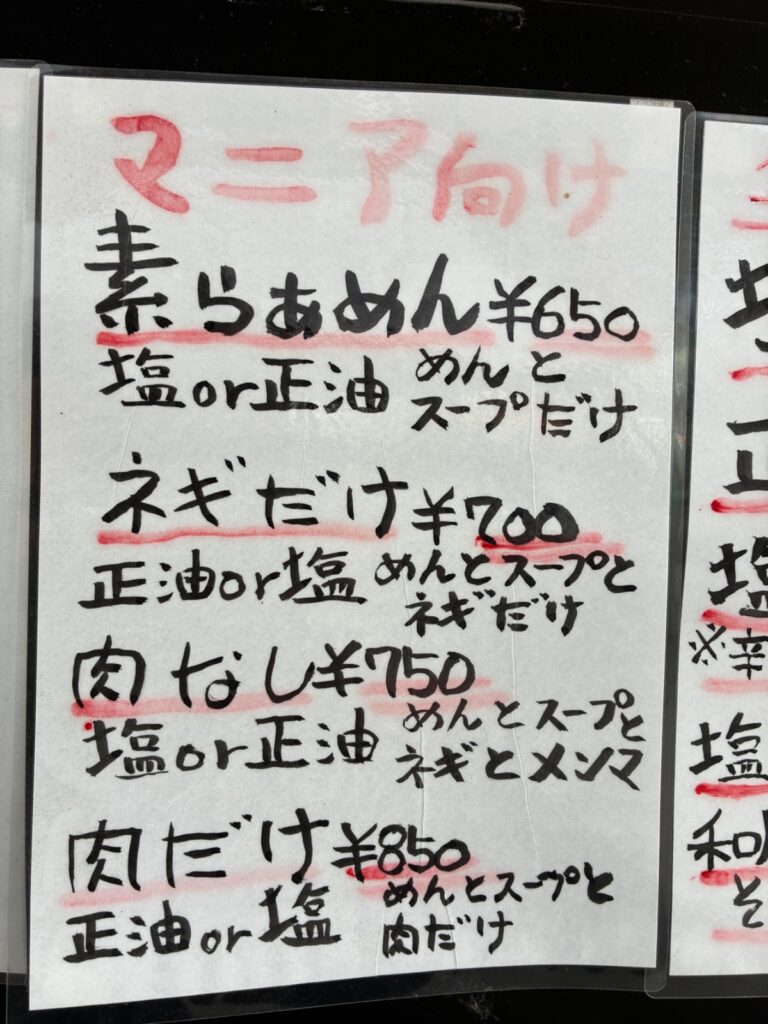 マニア向け
素らぁめん ¥650
塩or正油 めんと
スープだけ
ネギだけ ¥700
正油or塩 めんとスープと
ネギだけ
肉なし ¥750
塩or正油 めんとスープと
ネギとメンマ
肉だけ ¥850
正油or塩 めんとスープと
肉だけ
塩
※辛
塩
和
そ